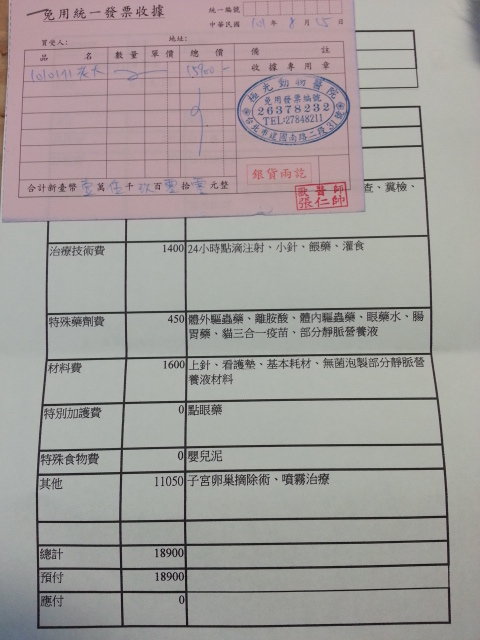 免用統一發票收據
統一編號
中華民國 101 年 8 月 15 日
買受人：
地址：
品名 數量 單價 總價 備註
收據專用章
15900-
極光動物醫院
免用發票編號
26378232
TEL:27848211
台北市建國南路二段31號
銀貨兩訖
獸醫師
張仁帥
合計新臺幣 壹 萬 伍 千 玖 百 零 拾 零 元整
查、糞檢、
治療技術費 1400 24小時點滴注射、小針、餵藥、灌食
特殊藥劑費 450 體外驅蟲藥、離胺酸、體內驅蟲藥、眼藥水、腸
胃藥、貓三合一疫苗、部分靜脈營養液
材料費 1600 上針、看護墊、基本耗材、無菌泡製部分靜脈營
養液材料
特別加護費 0 點眼藥
特殊食物費 0 嬰兒泥
其他 11050 子宮卵巢摘除術、噴霧治療
總計 18900
預付 18900
應付 0